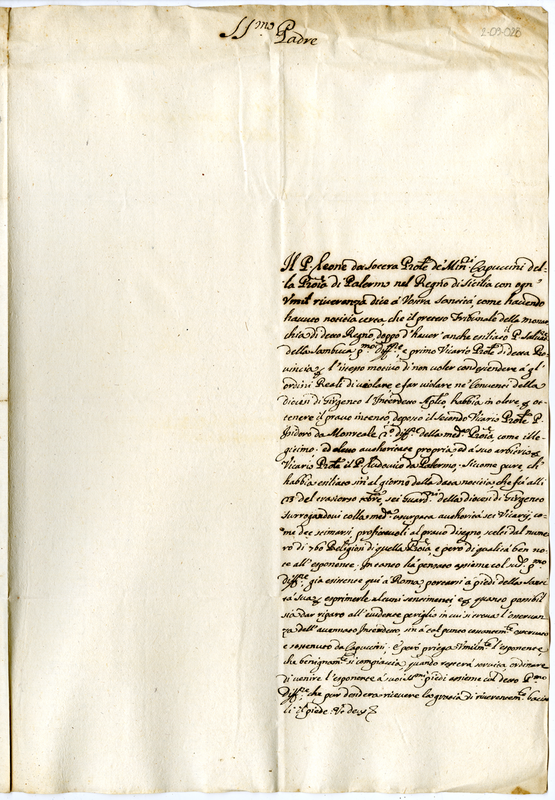 SS.mo Padre
2-09-028
Il P. Leone da Socera Pro.le de Min.ri Capuccini del-
la Prov.ia di Palermo nel Regno di Sicilia con ogn'
Umil riverenza dice a Vostra Santità, come havendo
havuto notitia certa che il preteso Tribunale della monar
chia di detto Regno doppo d'haver' anche esiliato il P.
della Sambuca p.mo Diff.re, e primo Vicario Pro.le di detta Pro
vincia, l'istesso motivo di non voler condescendere a gl'
ordini Reali di violare e far violare ne' Conventi della
diocesi di Girgento l'Interdetto Ap.lico, habbia in oltre
tenere il pravo intento, deposto il secondo Vicario Pro.le P.
Isidoro da Monreale Diff.re della med.a Prov.ia, come ille-
gitimo, ed eletto authoritate propria, ed a suo arbitrio
Vicario Pro.le il P. Ludovico da Palermo. Siccome pure, ch'
habbia esiliato sin'al giorno della data notitia, che fù alli
13 del trascorso sei Guard.ni della diocesi di Girgento
surrogandovi colla med.a usurpata authorità sei Vicarij, co-
me de scismatici, profittevoli al pravo disegno scelti dal nume
ro di 760 Religiosi di quella Prov.ia, e però di qualità ben no
te all'esponente. In tanto hà pensato assieme col sud.o p.mo
Diff.re già esistente quì a Roma, portarsi a piedi della Santi
tà sua esprimerle alcuni sentimenti quanto possibil
sia dar riparo all'evidente periglio in cui si trova l'osservan
za dell'accennato Interdetto, sin'a tal punto osservato
e sostenuto da Capuccini; e però priega l'esponente
che benignam.te si compiaccia, quando resterà servita ordinare
di venire l'esponente a suoi piedi assieme col detto P. p.mo
Diff.re, che pur desidera ricevere la gratia di riverentem.te bacia
li il piede.